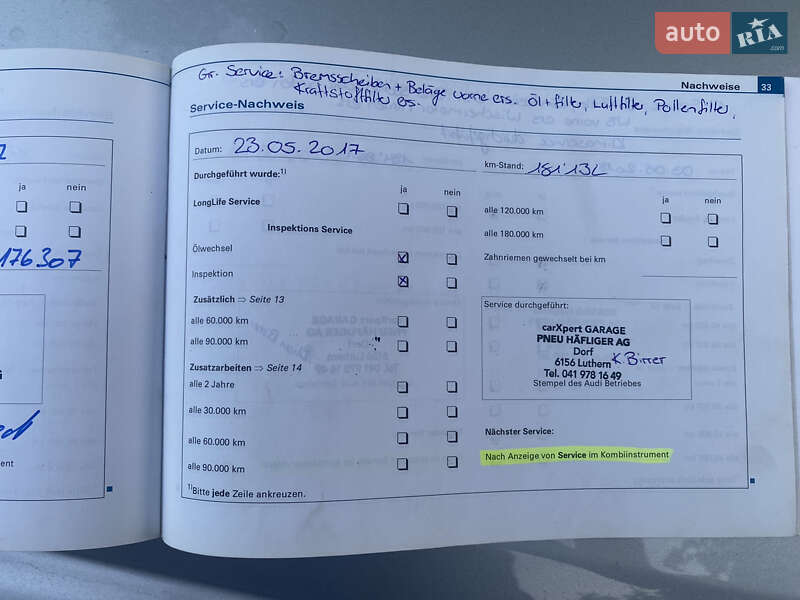 auto RIA .com
Nachweise 33
Gr. Service: Bremsscheiben + Beläge vorne ers. Öl + filter, Luftfilter, Pollenfilter,
Kraftstoffilter ers.
Service-Nachweis
Datum: 23.05.2017
km-Stand:
Durchgeführt wurde:1)
ja nein
LongLife Service
Inspektions Service
Ölwechsel
Inspektion
Zusätzlich ⇒ Seite 13
alle 60.000 km
alle 90.000 km
Zusatzarbeiten ⇒ Seite 14
alle 2 Jahre
alle 30.000 km
alle 60.000 km
alle 90.000 km
1)Bitte jede Zeile ankreuzen.
ja nein
alle 120.000 km
alle 180.000 km
Zahnriemen gewechselt bei km
Service durchgeführt:
carXpert GARAGE
PNEU HÄFLIGER AG
Dorf
6156 Luthern K Birrer
Tel. 041 978 16 49
Stempel des Audi Betriebes
Nächster Service:
Nach Anzeige von Service im Kombiinstrument
ja nein
176307